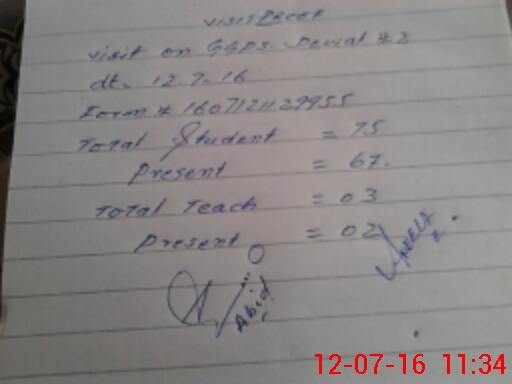 VISIT PROOF
visit on GGPS. Dewal # 2
dt. 12.7.16
Form # 1607121129955
Total Student = 75
Present = 67.
Total Teach = 03
Present = 02
Abid
12-07-16 11:34